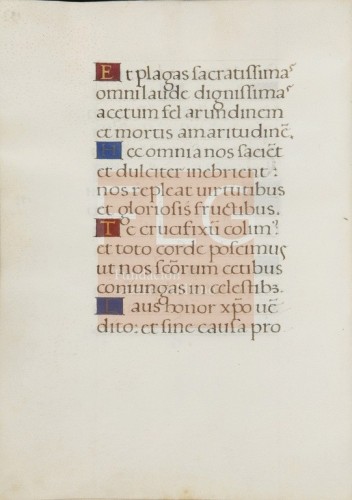 Et plagas sacratissimaˢ
omni laude dignissimaˢ
acetum fel arundinem
et mortis amaritudinē.
Hec omnia nos saciēt
et dulciter inebrient:
nos repleat uirtutibus
et gloriosis fructibus.
Te crucifixū colim᷒
et toto corde poscimus
ut nos scōrum cetibus
coniungas in celestibꝫ.
Laus honor xp̄o uē
dito: et sine causa pro
FLG